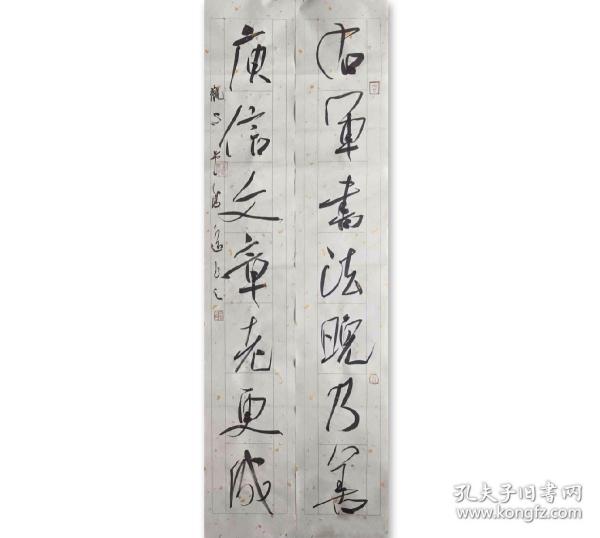 右军书法晚乃善
庾信文章老更成
孔夫子旧书网
www.kongfz.com